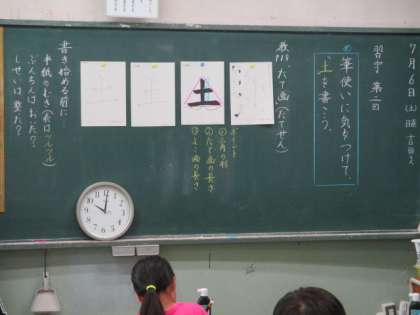 7月6日(土)
習字 第二回
筆使いに気をつけて、
「土」を書こう。
たて画(たてせん)
土
ポイント
①三角の形
②たて画の長さ
③よこ画の長さ
書き始める前に…
半紙のむき(表はツルツル)
ぶんちんはおいた?
しせいは整った?